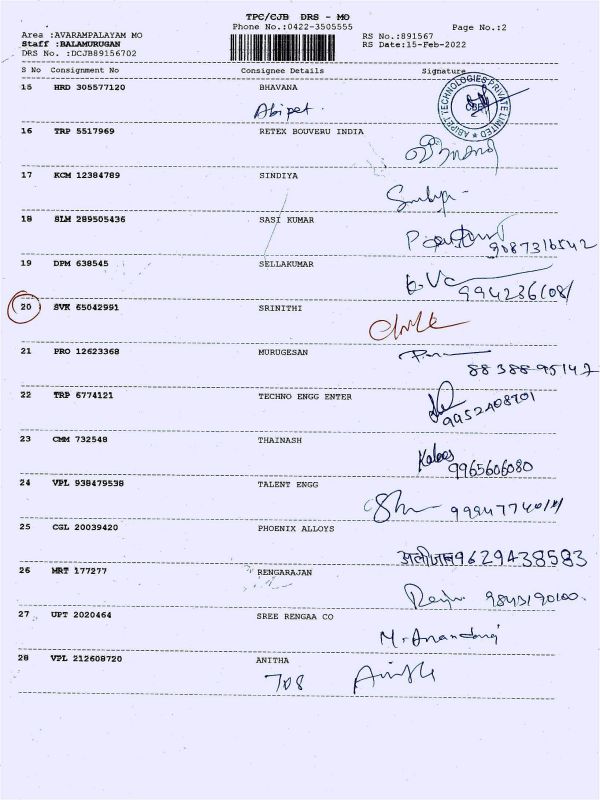 TPC/CJB DRS - MO
Phone No.:0422-3505555
Page No.:2
Area :AVARAMPALAYAM MO
RS No.:891567
Staff :BALAMURUGAN
RS Date:15-Feb-2022
DRS No. :DCJB89156702
S No Consignment No Consignee Details Signature
15 HRD 305577120 BHAVANA
Abipet.
ABIPET TECHNOLOGIES PRIVATE LIMITED
16 TRP 5517969 RETEX BOUVERU INDIA
17 KCM 12384789 SINDIYA
18 SLM 289505436 SASI KUMAR
9087316542
19 DPM 638545 SELLAKUMAR
20 SVK 65042991 SRINITHI
21 PRO 12623368 MURUGESAN
88388 95147
22 TRP 6774121 TECHNO ENGG ENTER
9952408701
23 CMM 732548 THAINASH
9965606080
24 VPL 938479538 TALENT ENGG
25 CGL 20039420 PHOENIX ALLOYS
9629438583
26 MRT 177277 RENGARAJAN
9843190100.
27 UPT 2020464 SREE RENGAA CO
M. Anandaraj
28 VPL 212608720 ANITHA
708